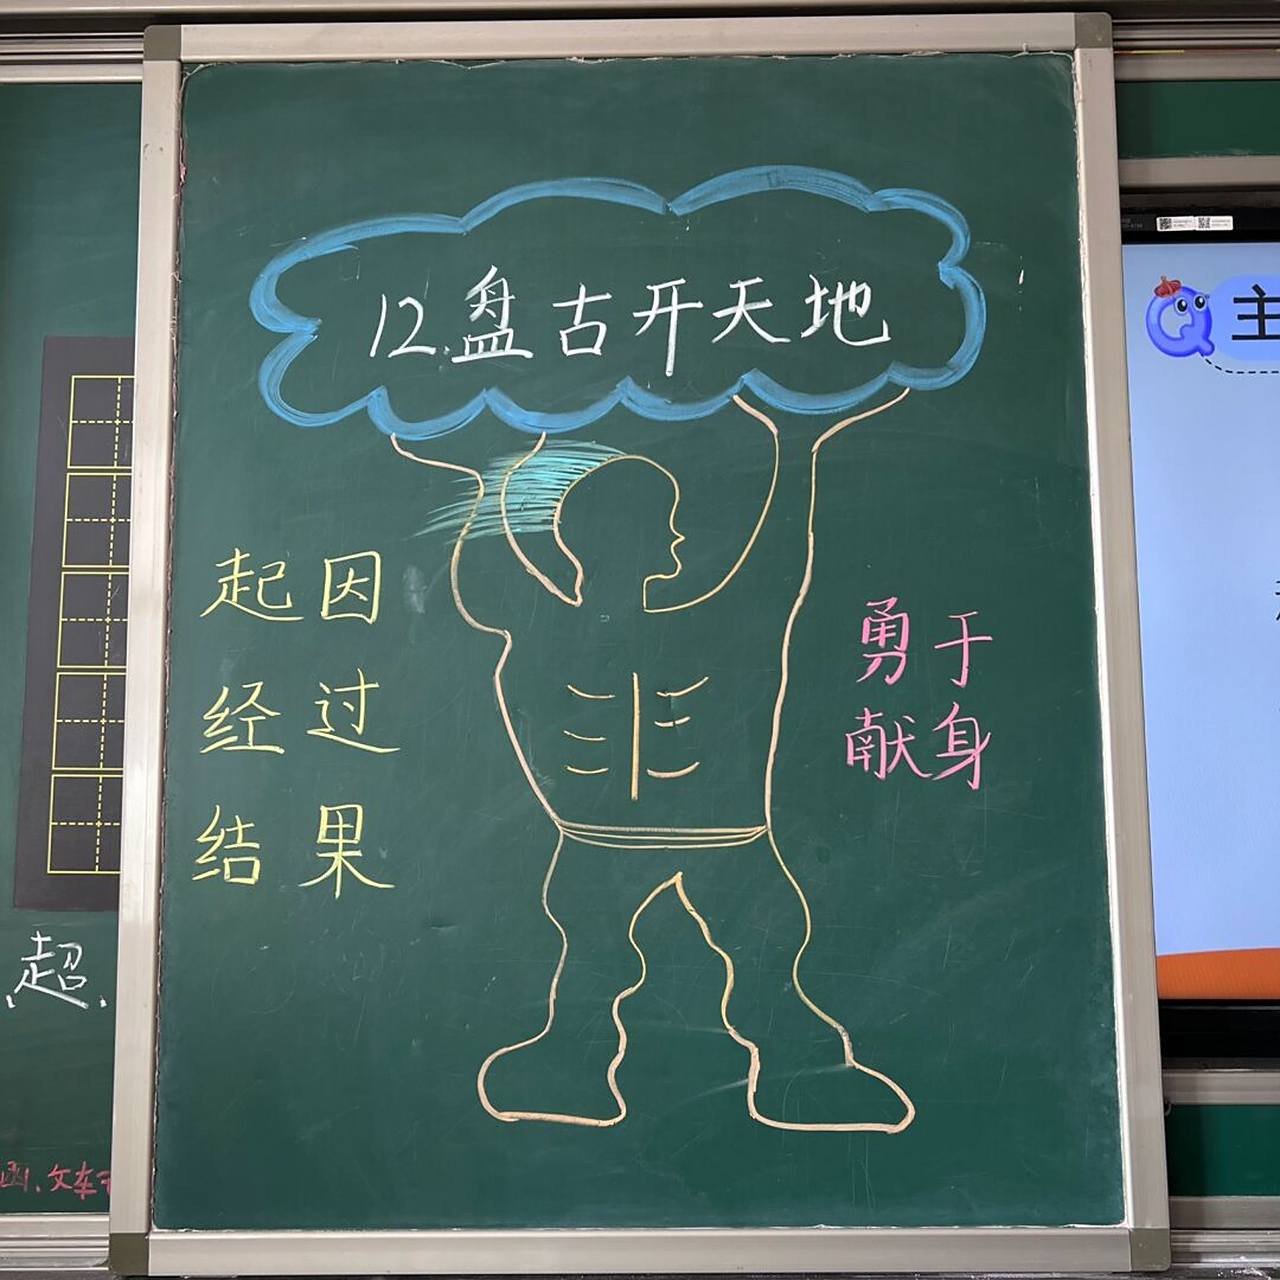 12.盘古开天地
起因
经过
结果
勇于
献身
超.
主